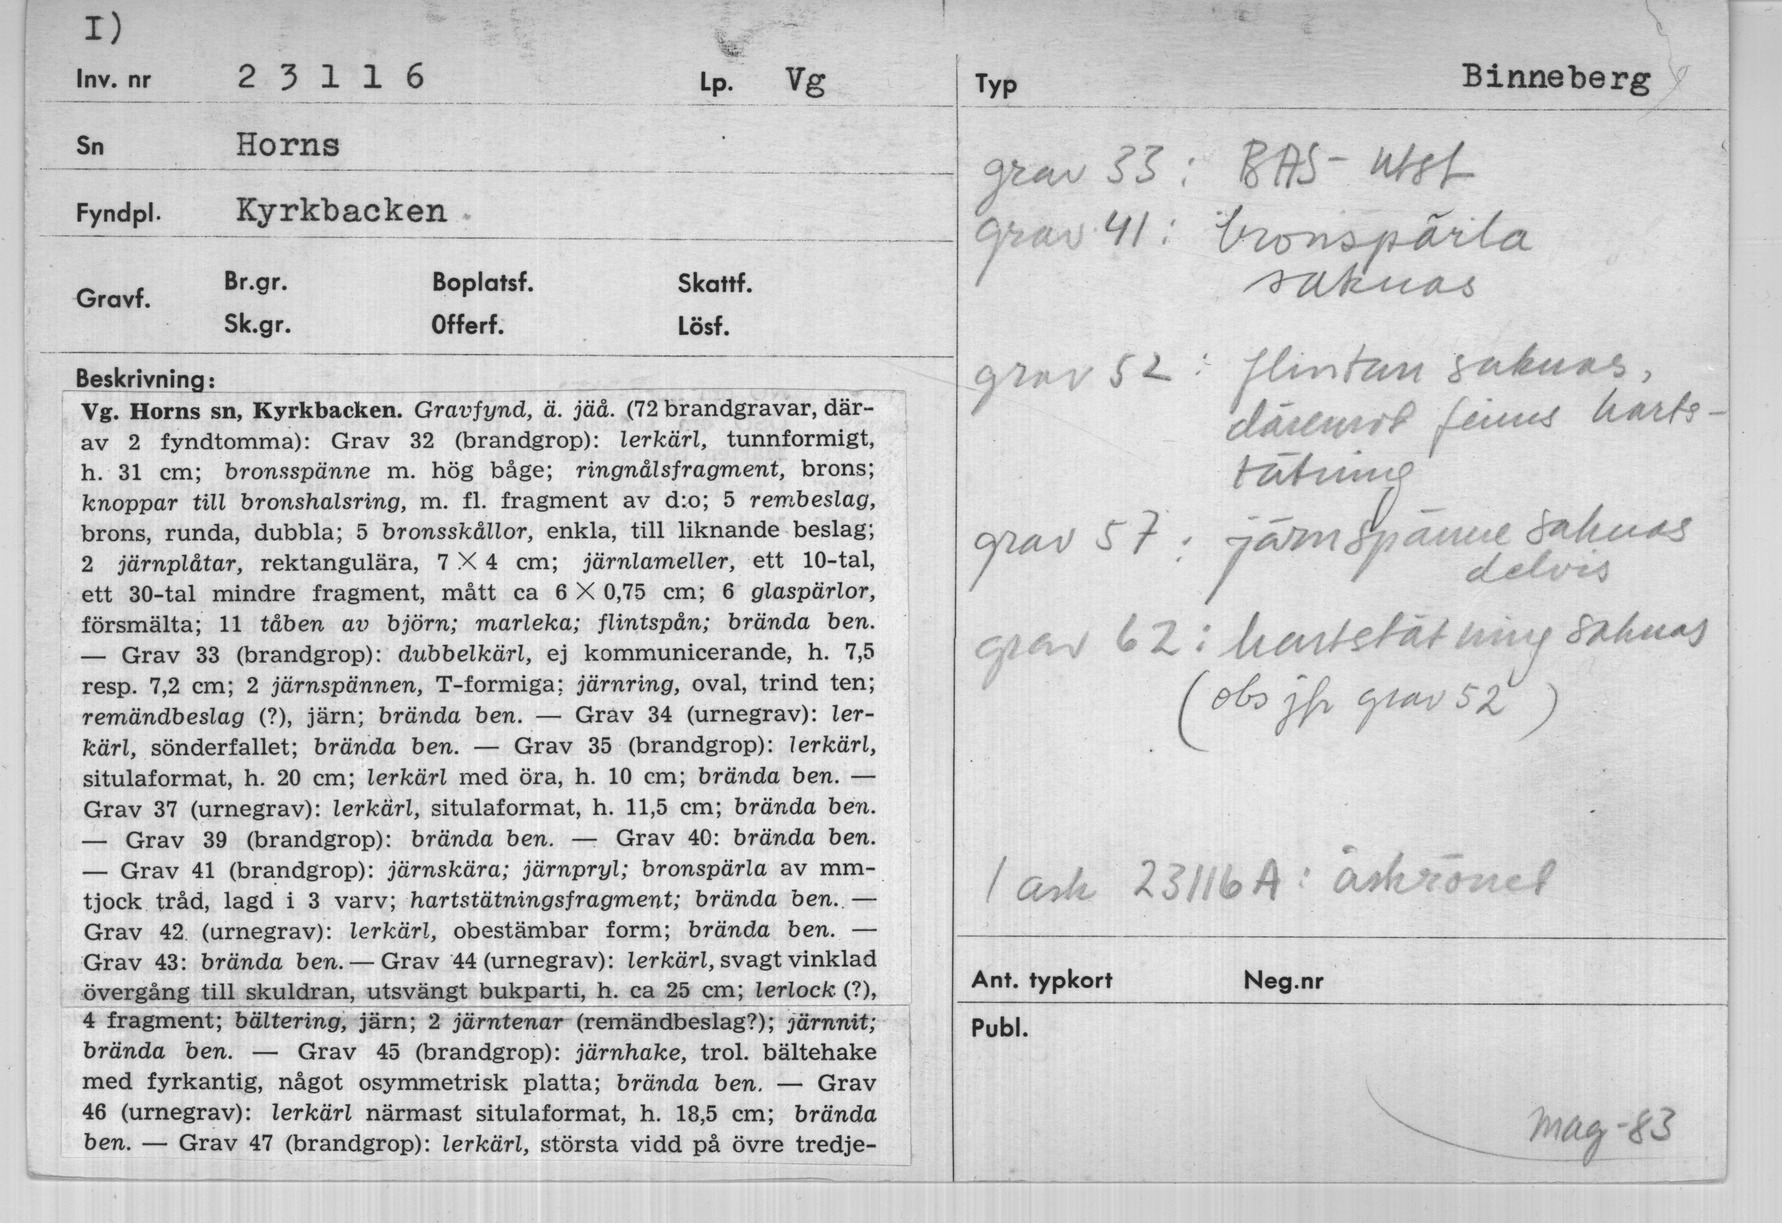 I)
Inv. nr 2 3 1 1 6 Lp. Vg
Sn Horns
Fyndpl. Kyrkbacken
Gravf. Br.gr. Boplatsf. Skattf.
Sk.gr. Offerf. Lösf.
Beskrivning:
Vg. Horns sn, Kyrkbacken. Gravfynd, ä. jäå. (72 brandgravar, där-
av 2 fyndtomma): Grav 32 (brandgrop): lerkärl, tunnformigt,
h. 31 cm; bronsspänne m. hög båge; ringnålsfragment, brons;
knoppar till bronshalsring, m. fl. fragment av d:o; 5 rembeslag,
brons, runda, dubbla; 5 bronsskållor, enkla, till liknande beslag;
2 järnplåtar, rektangulära, 7 × 4 cm; järnlameller, ett 10-tal,
ett 30-tal mindre fragment, mått ca 6 × 0,75 cm; 6 glaspärlor,
försmälta; 11 tåben av björn; marleka; flintspån; brända ben.
— Grav 33 (brandgrop): dubbelkärl, ej kommunicerande, h. 7,5
resp. 7,2 cm; 2 järnspännen, T-formiga; järnring, oval, trind ten;
remändbeslag (?), järn; brända ben. — Grav 34 (urnegrav): ler-
kärl, sönderfallet; brända ben. — Grav 35 (brandgrop): lerkärl,
situlaformat, h. 20 cm; lerkärl med öra, h. 10 cm; brända ben. —
Grav 37 (urnegrav): lerkärl, situlaformat, h. 11,5 cm; brända ben.
— Grav 39 (brandgrop): brända ben. — Grav 40: brända ben.
— Grav 41 (brandgrop): järnskära; järnpryl; bronspärla av mm-
tjock tråd, lagd i 3 varv; hartstätningsfragment; brända ben. —
Grav 42 (urnegrav): lerkärl, obestämbar form; brända ben. —
Grav 43: brända ben. — Grav 44 (urnegrav): lerkärl, svagt vinklad
övergång till skuldran, utsvängt bukparti, h. ca 25 cm; lerlock (?),
4 fragment; bältering, järn; 2 järntenar (remändbeslag?); järnnit;
brända ben. — Grav 45 (brandgrop): järnhake, trol. bältehake
med fyrkantig, något osymmetrisk platta; brända ben. — Grav
46 (urnegrav): lerkärl närmast situlaformat, h. 18,5 cm; brända
ben. — Grav 47 (brandgrop): lerkärl, största vidd på övre tredje-
Typ Binneberg
grav 33: BAS- utst
grav 41: bronspärla
saknas
grav 52: flintan saknas,
däremot finns harts-
tätning
grav 57: järnspänne saknas
delvis
grav 62: hartstätning saknas
(obs jfr grav 52)
1 ask 23116A: askrönet
Ant. typkort Neg.nr
Publ.
mag-83